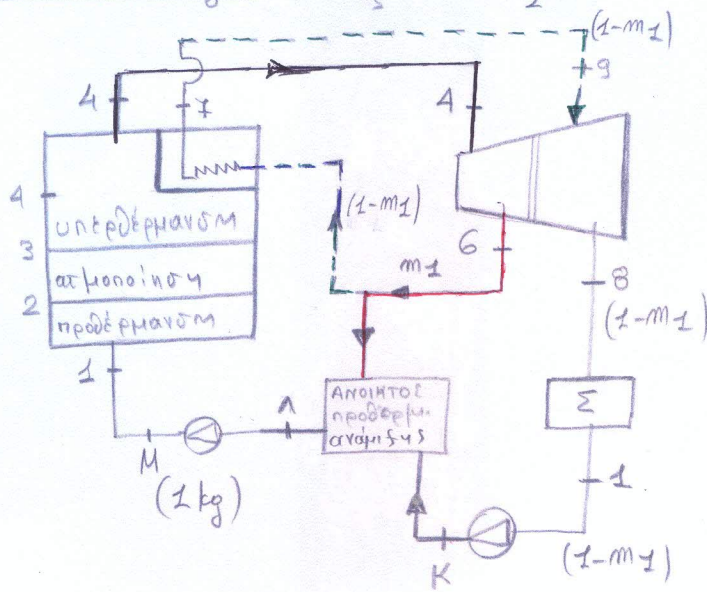 (1-m1)
9
4
7
4
4
υπερθέρμανση
(1-m1)
6
m1
3
ατμοποίηση
8
2
προθέρμανση
(1-m1)
1
ΑΝΟΙΚΤΟΣ
προθερμ.
ανάμιξης
Σ
Λ
M
(1kg)
1
K
(1-m1)